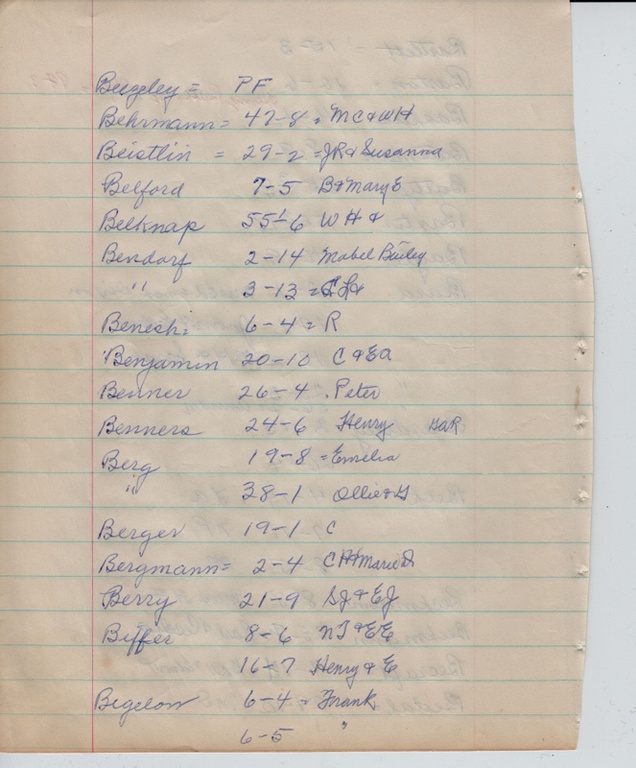 Beezley = PF
Behrmann = 47-8 = MC & WH
Beistlin = 29-2 = JR & Susanna
Belford 7-5 B & Mary E
Belknap 55-6 WH &
Bendorf 2-14 Mabel Bailey
" 3-13 =
Benesh = 6-4 = R
Benjamin 20-10 C & Ea
Benner 26-4 . Peter
Benners 24-6 Henry GAR
Berg 19-8 = Emelia
" 38-1 Ollie & G
Berger 19-1 C
Bergmann = 2-4 CH & Marie
Berry 21-9 SJ & EJ
Biffer 8-6 NT & EE
16-7 Henry & E
Bigelow 6-4 = Frank
6-5 "